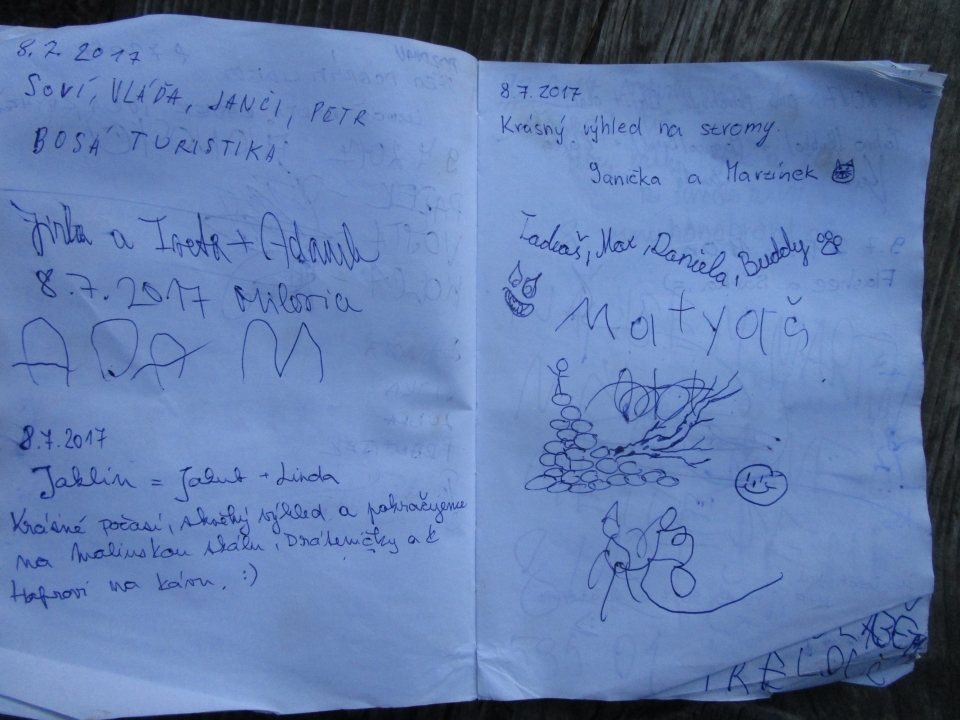 8.7.2017
SOVÍ, VLÁĎA, JANČI, PETR
BOSÁ TURISTIKA
Jirka a Iveta + Adamek
8.7.2017 Milovice
ADAM
8.7.2017
Jaklin = Jakub + Linda
Krásné počasí, skočký výhled a pokračujeme
na Malinskou skálu, Dráteničky a k
na kávu. :)
8.7.2017
Krásný výhled na stromy.
Janička a Marťínek
Tadeáš, Max, Daniela, Buddy
Matyáš